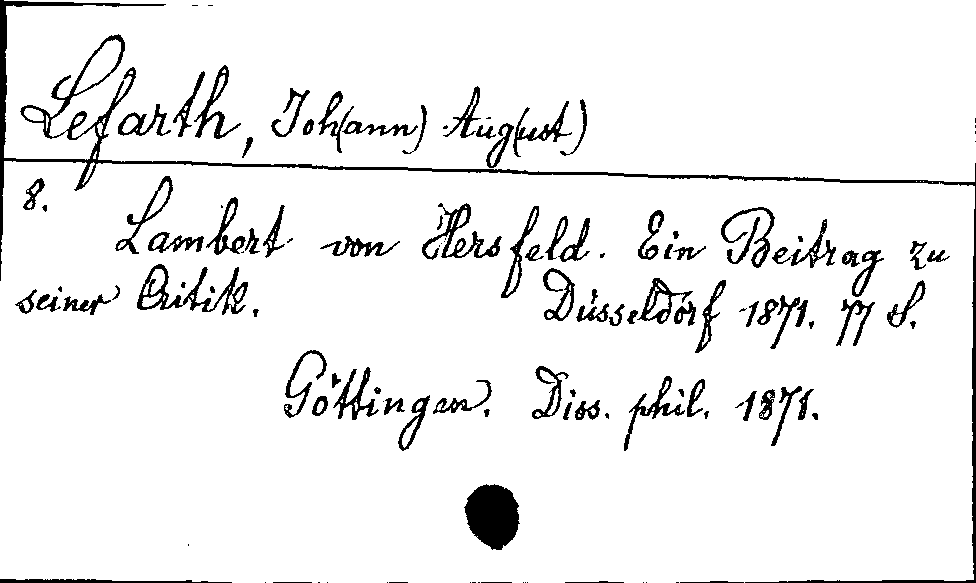 Lefarth, Joh(ann) Aug(ust)
8.
Lambert von Hersfeld. Ein Beitrag zu
seiner Critik. Düsseldorf 1871. 77 S.
Göttingen. Diss. phil. 1871.